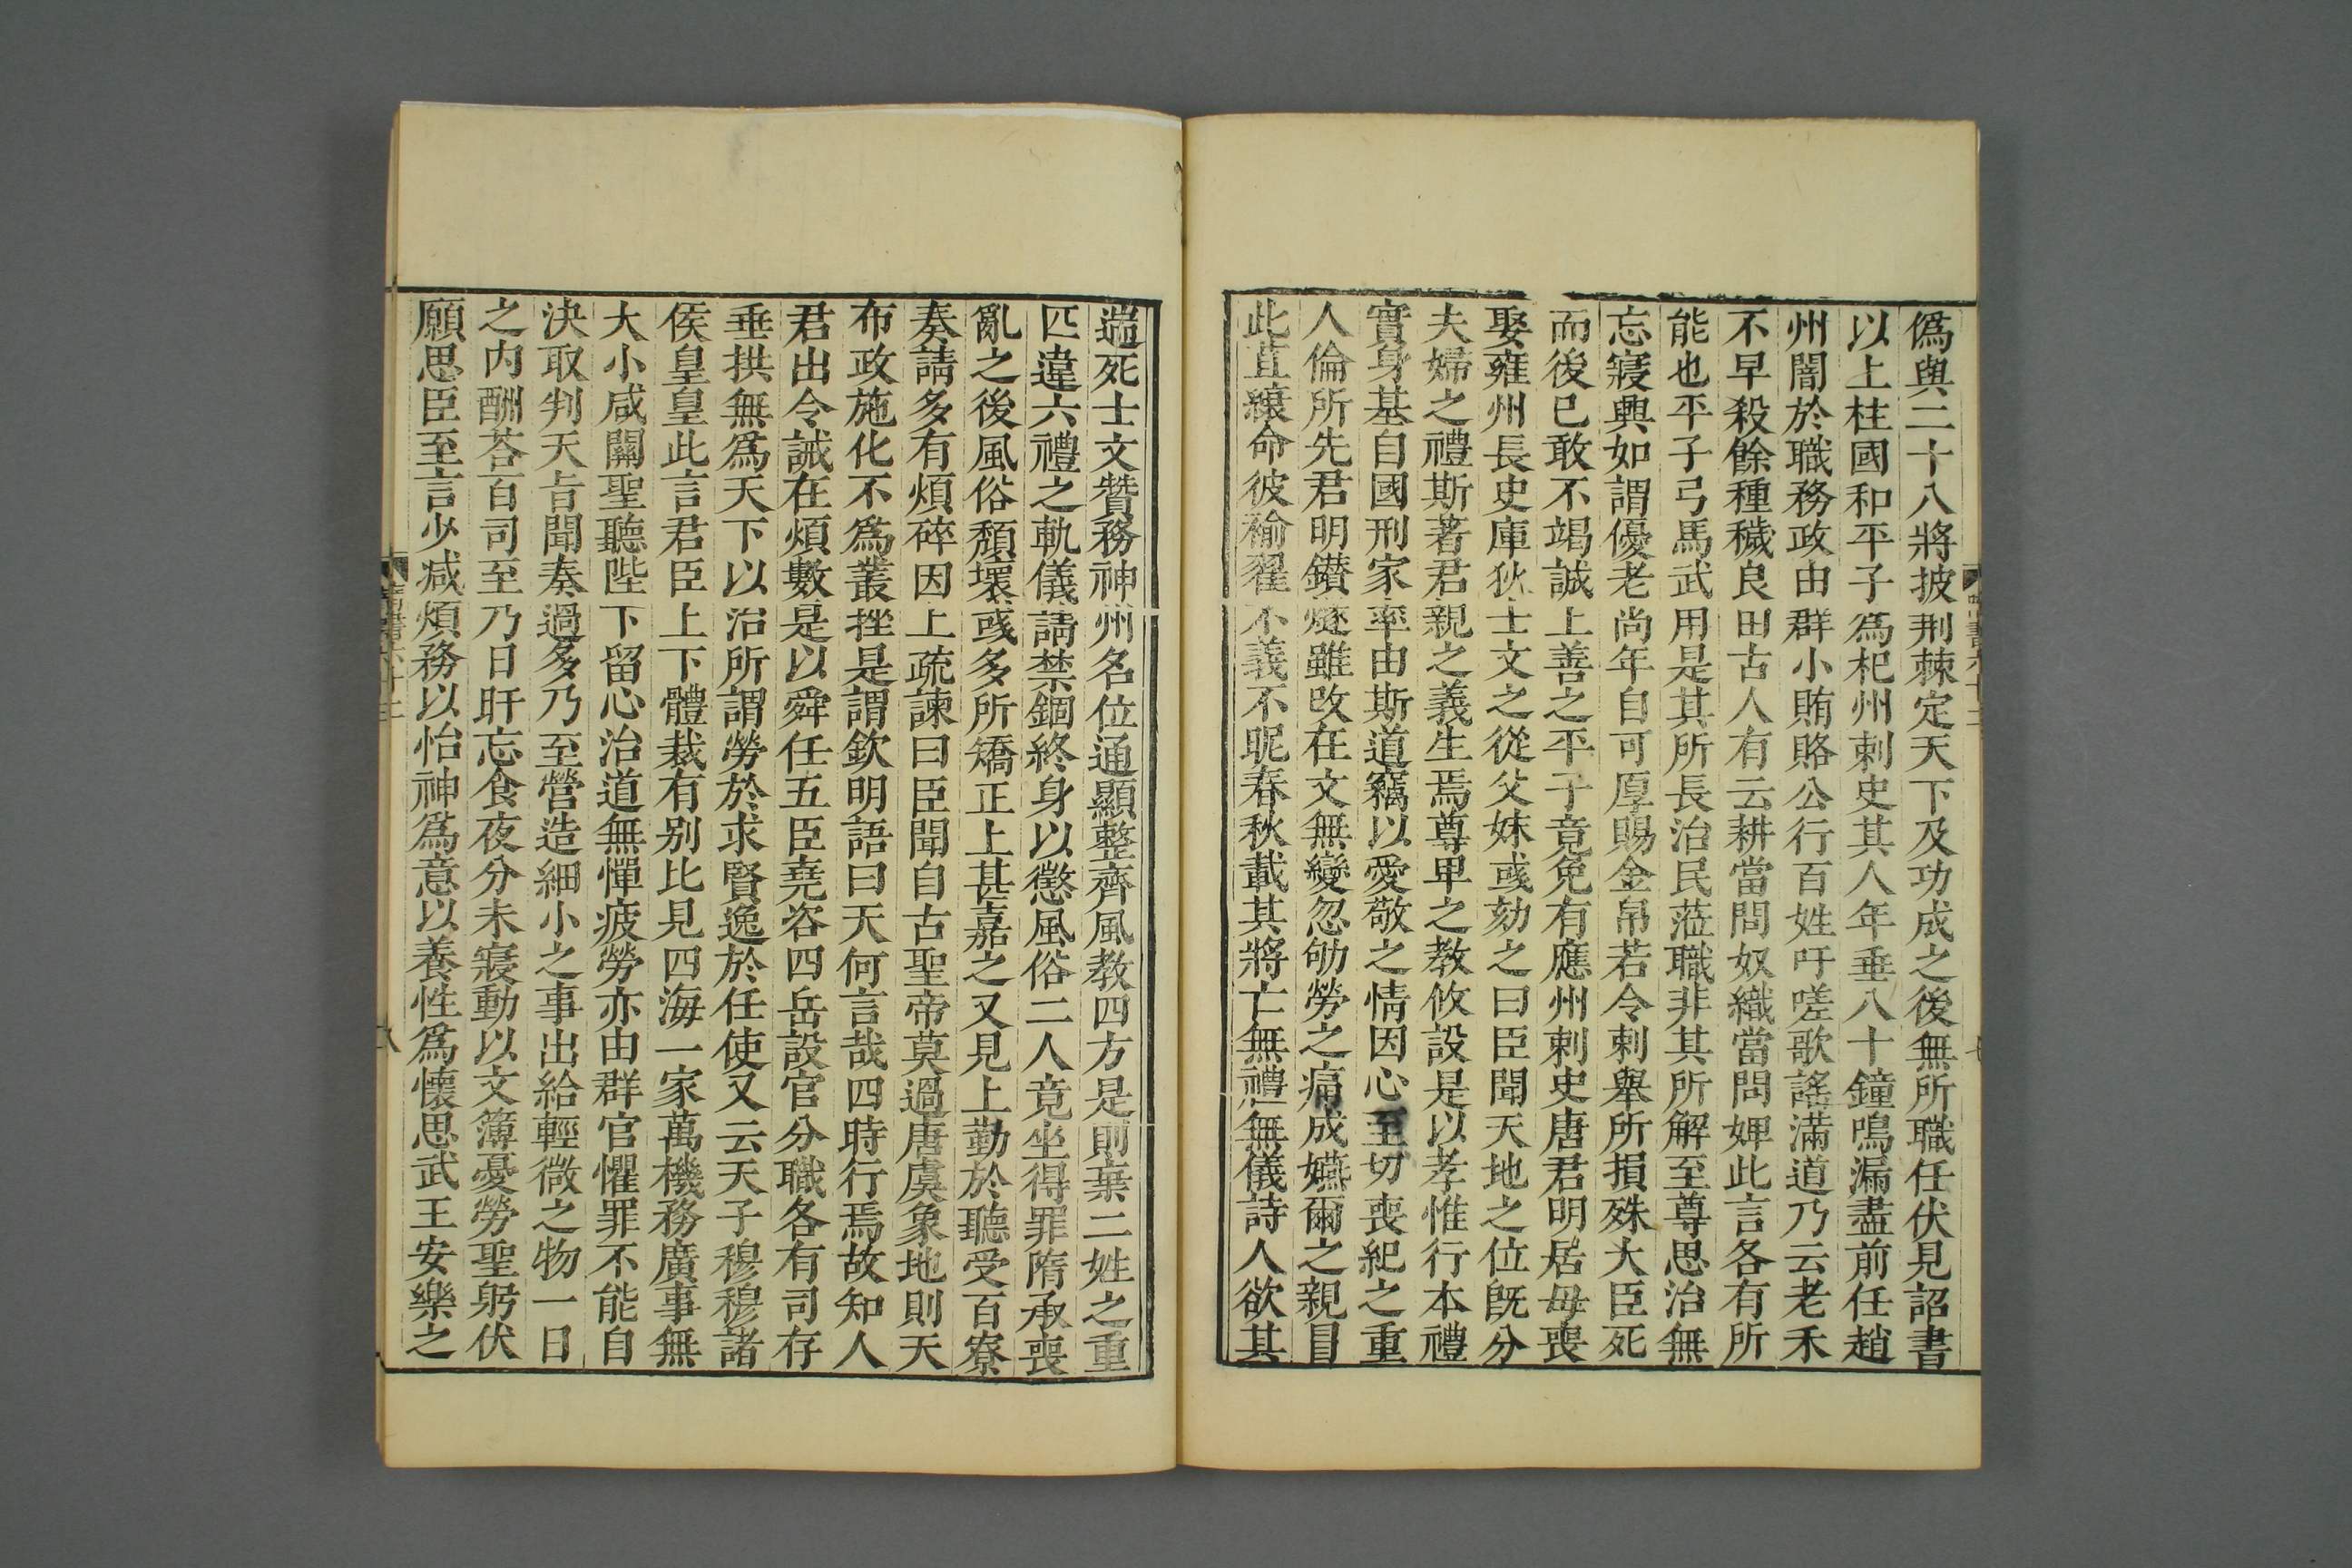 僞與二十八將披荆棘定天下及功成之後無所職任伏見詔書
以上柱國和平子爲杞州刺史其人年垂八十鐘鳴漏盡前任趙
州闇於職務政由群小賄賂公行百姓吁嗟歌謠滿道乃云老禾
不早殺餘種穢良田古人有云耕當問奴織當問婢此言各有所
能也平子弓馬武用是其所長治民蒞職非其所解至尊思治無
忘寢興如謂優老尚年自可厚賜金帛若令刺舉所損殊大臣死
而後已敢不竭誠上善之平子竟免有應州刺史唐君明居母喪
娶雍州長史庫狄士文之從父妹彧劾之曰臣聞天地之位旣分
夫婦之禮斯著君親之義生焉尊卑之教攸設是以孝惟行本禮
實身基自國刑家率由斯道竊以愛敬之情因心至切喪紀之重
人倫所先君明鑚燧雖改在文無變忽劬勞之痛成嬿爾之親冒
此苴縗命彼褕翟不義不昵春秋載其將亡無禮無儀詩人欲其
遄死士文贊務神州名位通顯整齊風教四方是則棄二姓之重
匹違六禮之軌儀請禁錮終身以懲風俗二人竟坐得罪隋承喪
亂之後風俗頹壞彧多所矯正上甚嘉之又見上勤於聽受百寮
奏請多有煩碎因上疏諫曰臣聞自古聖帝莫過唐虞象地則天
布政施化不爲叢挫是謂欽明語曰天何言哉四時行焉故知人
君出令誡在煩數是以舜任五臣堯咨四岳設官分職各有司存
垂拱無爲天下以治所謂勞於求賢逸於任使又云天子穆穆諸
侯皇皇此言君臣上下體裁有别比見四海一家萬機務廣事無
大小咸關聖聽陛下留心治道無憚疲勞亦由群官懼罪不能自
決取判天旨聞奏過多乃至營造細小之事出給輕微之物一日
之内酬荅百司至乃日旰忘食夜分未寢動以文簿憂勞聖躬伏
願思臣至言少減煩務以怡神爲意以養性爲懷思武王安樂之
八